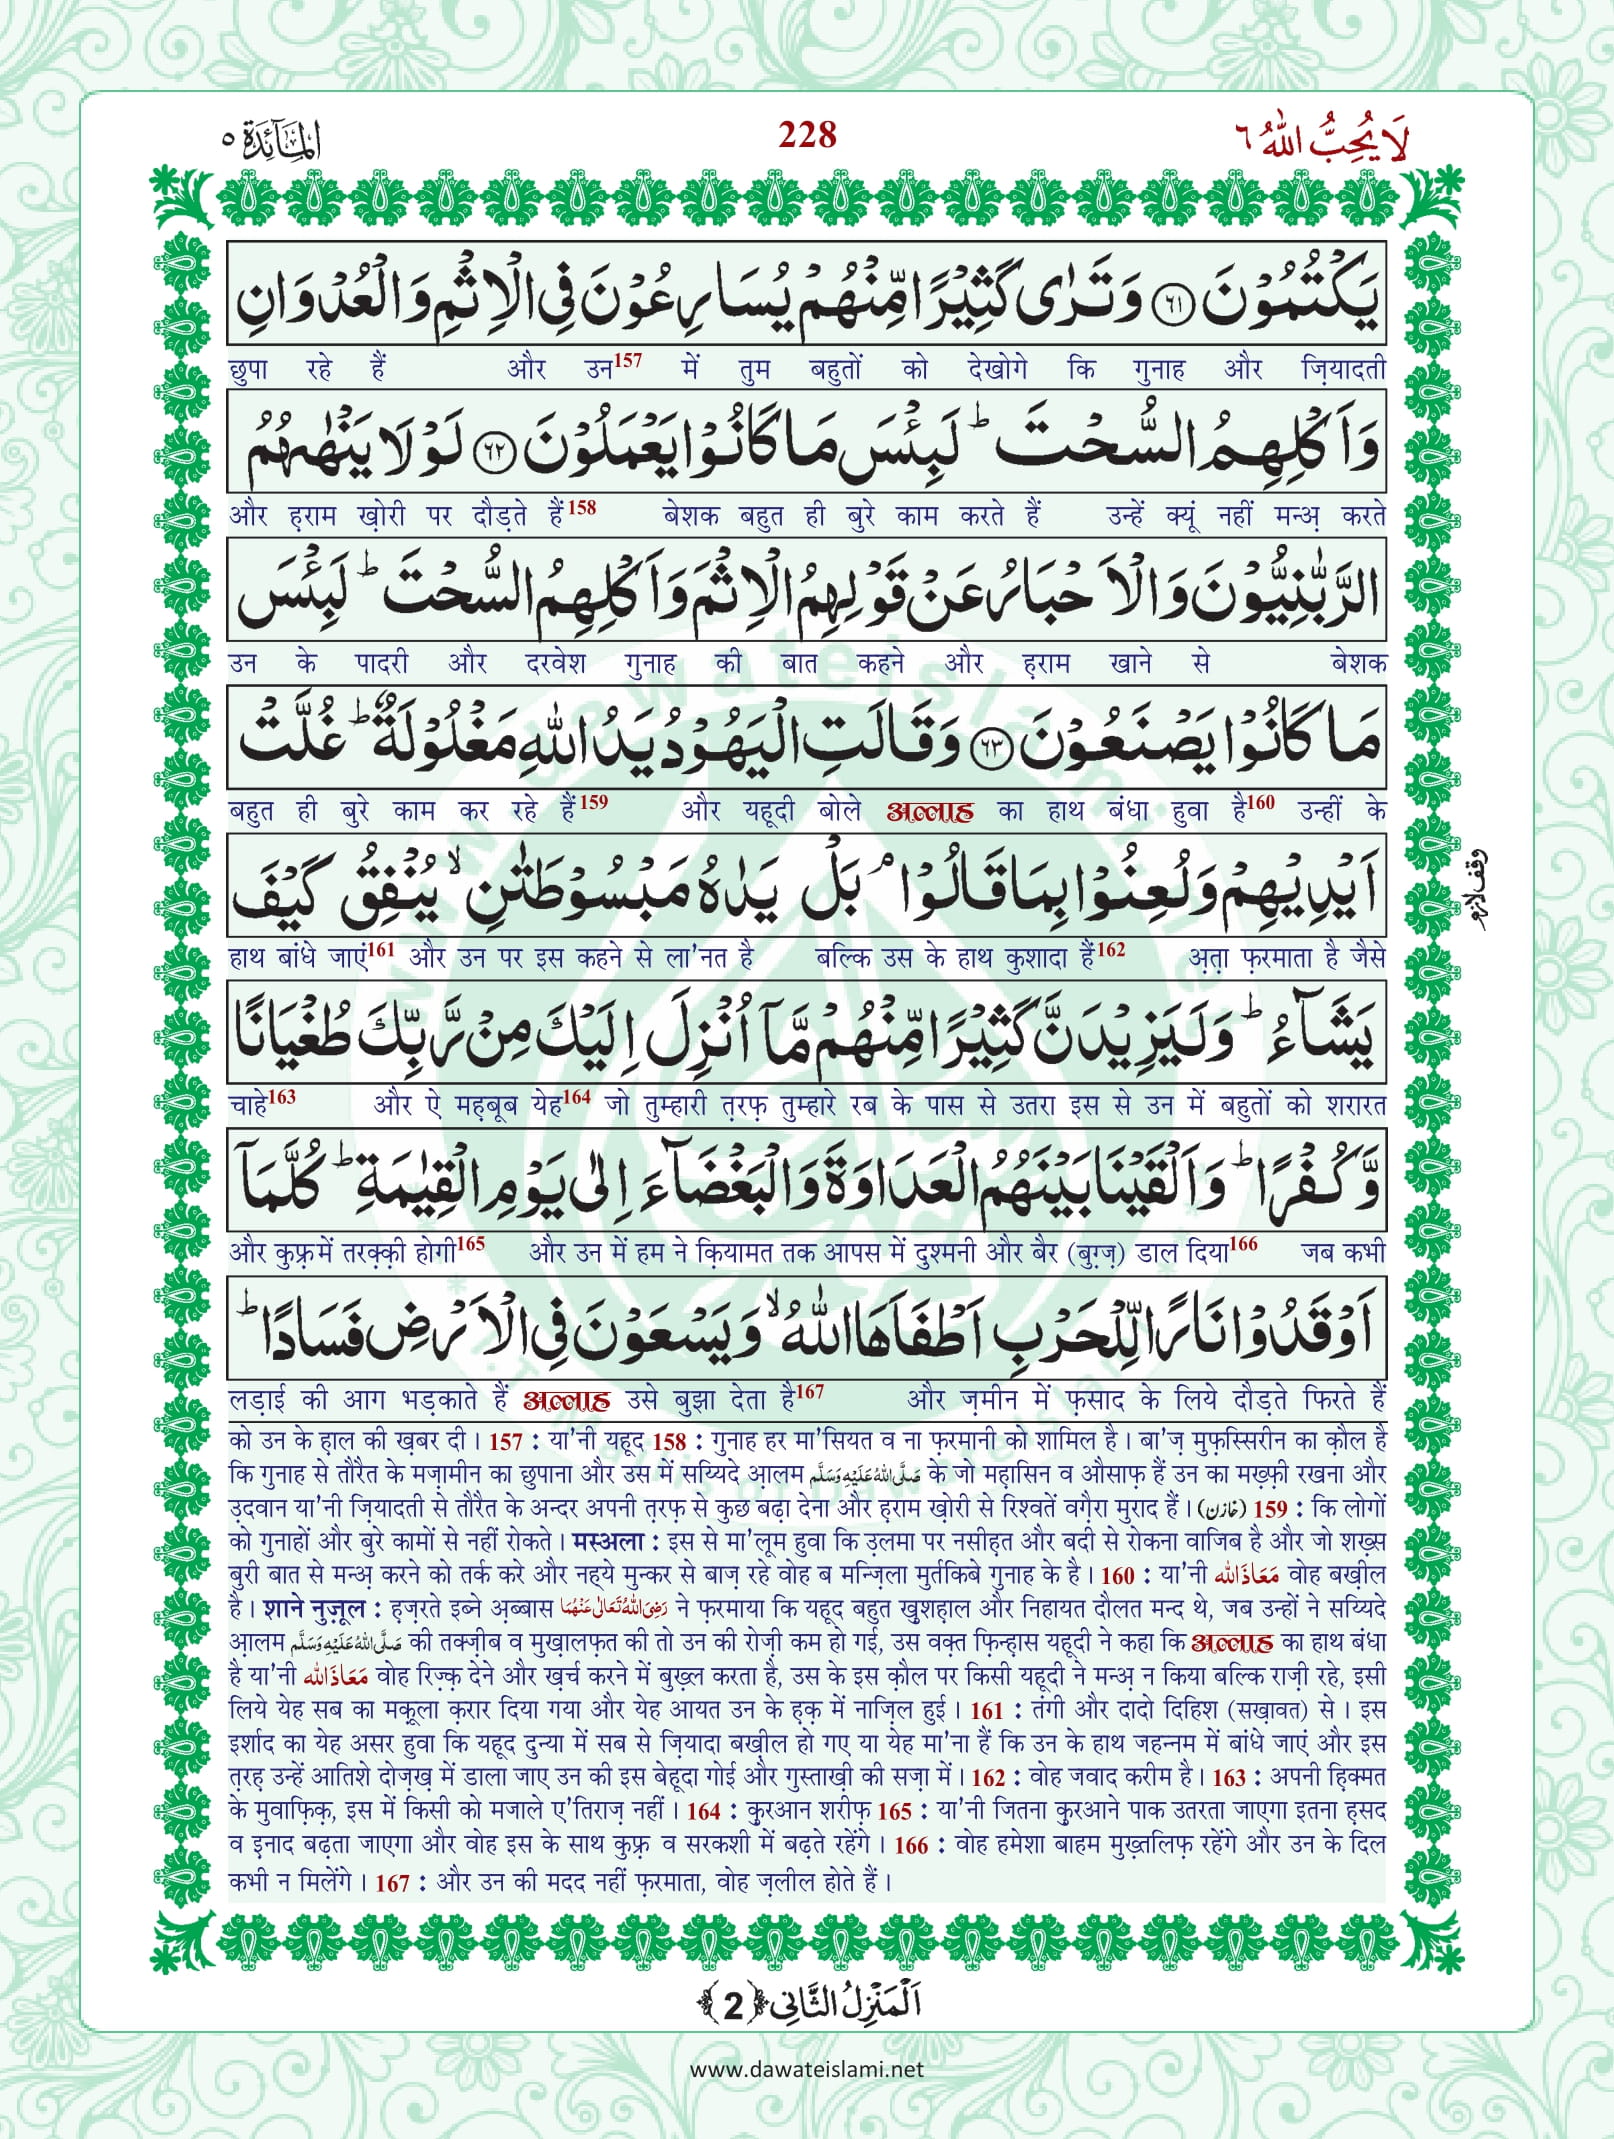 لَا يُحِبُّ اللّٰهُ ٦
228
الْمَآئِدَة ٥
يَكْتُمُوْنَ ﴿٦١﴾ وَتَرٰى كَثِيْرًا مِّنْهُمْ يُسَارِعُوْنَ فِى الْاِثْمِ وَالْعُدْوَانِ
छुपा रहे हैं और उन157 में तुम बहुतों को देखोगे कि गुनाह और ज़ियादती
وَاَكْلِهِمُ السُّحْتَ ؕ لَبِئْسَ مَا كَانُوْا يَعْمَلُوْنَ ﴿٦٢﴾ لَوْلَا يَنْهٰىهُمُ
और ह़राम ख़ोरी पर दौड़ते हैं158 बेशक बहुत ही बुरे काम करते हैं उन्हें क्यूं नहीं मन्अ़ करते
الرَّبّٰنِيُّوْنَ وَالْاَحْبَارُ عَنْ قَوْلِهِمُ الْاِثْمَ وَاَكْلِهِمُ السُّحْتَ ؕ لَبِئْسَ
उन के पादरी और दरवेश गुनाह की बात कहने और ह़राम खाने से बेशक
مَا كَانُوْا يَصْنَعُوْنَ ﴿٦٣﴾ وَقَالَتِ الْيَهُوْدُ يَدُ اللّٰهِ مَغْلُوْلَةٌ ؕ غُلَّتْ
बहुत ही बुरे काम कर रहे हैं159 और यहूदी बोले अल्लाह का हाथ बंधा हुवा है160 उन्हीं के
اَيْدِيْهِمْ وَلُعِنُوْا بِمَا قَالُوْا ۘ بَلْ يَدٰهُ مَبْسُوْطَتٰنِ ۙ يُنْفِقُ كَيْفَ
وقف لازم
हाथ बांधे जाएं161 और उन पर इस कहने से ला'नत है बल्कि उस के हाथ कुशादा हैं162 अ़त़ा फ़रमाता है जैसे
يَشَآءُ ؕ وَلَيَزِيْدَنَّ كَثِيْرًا مِّنْهُمْ مَّآ اُنْزِلَ اِلَيْكَ مِنْ رَّبِّكَ طُغْيَانًا
चाहे163 और ऐ मह़बूब येह164 जो तुम्हारी त़रफ़ तुम्हारे रब के पास से उतरा इस से उन में बहुतों को शरारत
وَّكُفْرًا ؕ وَاَلْقَيْنَا بَيْنَهُمُ الْعَدَاوَةَ وَالْبَغْضَآءَ اِلٰى يَوْمِ الْقِيٰمَةِ ؕ كُلَّمَآ
और कुफ़्र में तरक़्क़ी होगी165 और उन में हम ने क़ियामत तक आपस में दुश्मनी और बैर (बुग़्ज़) डाल दिया166 जब कभी
اَوْقَدُوْا نَارًا لِّلْحَرْبِ اَطْفَاَهَا اللّٰهُ ۙ وَيَسْعَوْنَ فِى الْاَرْضِ فَسَادًا ؕ
लड़ाई की आग भड़काते हैं अल्लाह उसे बुझा देता है167 और ज़मीन में फ़साद के लिये दौड़ते फिरते हैं
को उन के ह़ाल की ख़बर दी । 157 : या'नी यहूद 158 : गुनाह हर मा'सियत व ना फ़रमानी को शामिल है । बा'ज़ मुफ़स्सिरीन का क़ौल है
कि गुनाह से तौरैत के मज़ामीन का छुपाना और उस में सय्यिदे आ़लम صَلَّى اللّٰهُ عَلَيْهِ وَسَلَّم के जो मह़ासिन व औसाफ़ हैं उन का मख़्फ़ी रखना और
उ़दवान या'नी ज़ियादती से तौरैत के अन्दर अपनी त़रफ़ से कुछ बढ़ा देना और ह़राम ख़ोरी से रिश्वतें वग़ैरा मुराद हैं । (خازن) 159 : कि लोगों
को गुनाहों और बुरे कामों से नहीं रोकते । मस्अला : इस से मा'लूम हुवा कि उ़लमा पर नसीह़त और बदी से रोकना वाजिब है और जो शख़्स
बुरी बात से मन्अ़ करने को तर्क करे और नह्‌ये मुन्कर से बाज़ रहे वोह ब मन्ज़िला मुर्तकिबे गुनाह के है । 160 : या'नी مَعَاذَ اللّٰه वोह बख़ील
है । शाने नुज़ूल : ह़ज़रते इब्ने अ़ब्बास رَضِىَ اللّٰهُ تَعَالٰى عَنْهُمَا ने फ़रमाया कि यहूद बहुत ख़ुशह़ाल और निहायत दौलत मन्द थे, जब उन्हों ने सय्यिदे
आ़लम صَلَّى اللّٰهُ عَلَيْهِ وَسَلَّم की तक्ज़ीब व मुख़ालफ़त की तो उन की रोज़ी कम हो गई, उस वक़्त फ़िन्ह़ास यहूदी ने कहा कि अल्लाह का हाथ बंधा
है या'नी مَعَاذَ اللّٰه वोह रिज़्क़ देने और ख़र्च करने में बुख़्ल करता है, उस के इस क़ौल पर किसी यहूदी ने मन्अ़ न किया बल्कि राज़ी रहे, इसी
लिये येह सब का मक़ूला क़रार दिया गया और येह आयत उन के ह़क़ में नाज़िल हुई । 161 : तंगी और दादो दिहिश (सख़ावत) से । इस
इर्शाद का येह असर हुवा कि यहूद दुन्या में सब से ज़ियादा बख़ील हो गए या येह मा'ना हैं कि उन के हाथ जहन्नम में बांधे जाएं और इस
त़रह़ उन्हें आतिशे दोज़ख़ में डाला जाए उन की इस बेहूदा गोई और गुस्ताख़ी की सज़ा में । 162 : वोह जवाद करीम है । 163 : अपनी ह़िक्मत
के मुवाफ़िक़, इस में किसी को मजाले ए'तिराज़ नहीं । 164 : क़ुरआन शरीफ़ 165 : या'नी जितना क़ुरआने पाक उतरता जाएगा इतना ह़सद
व इ़नाद बढ़ता जाएगा और वोह इस के साथ कुफ़्र व सरकशी में बढ़ते रहेंगे । 166 : वोह हमेशा बाहम मुख़्तलिफ़ रहेंगे और उन के दिल
कभी न मिलेंगे । 167 : और उन की मदद नहीं फ़रमाता, वोह ज़लील होते हैं ।
اَلْمَنْزِلُ الثَّانِى ﴿2﴾
www.dawateislami.net